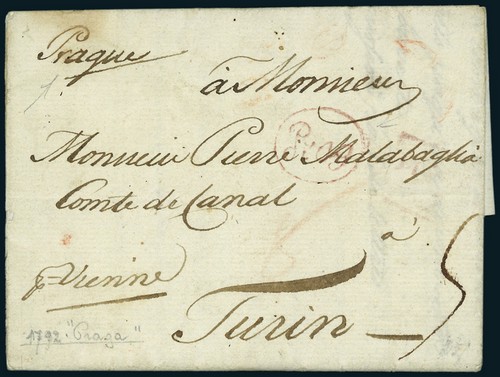 Prague
à Monsieur
Prag
Monsieur Pierre Malabaglia
Comte de Canal
à
pr Vienne
Turin
5
1792 "Praga"